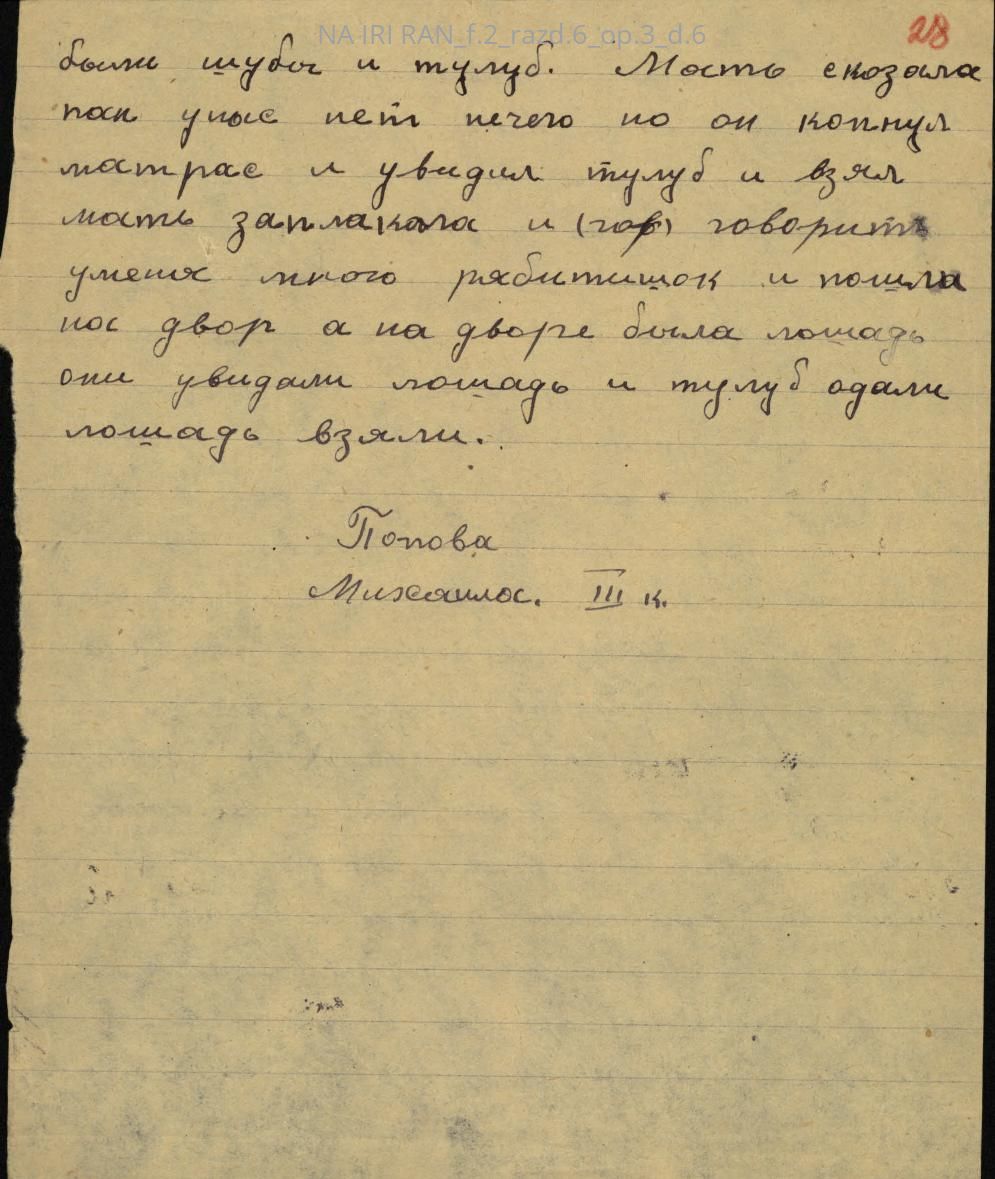 NA IRI RAN_f.2_razd.6_op.3_d.6
28
были шубы и тулуб. Мать сказала
пан унас нет нечего но он копнул
матрас и увидил тулуб и взял
мать заплакала и (гов) говорить
уменя много рябитишок и пошла
на двор а на дворе была лошадь
они увидали лошадь и тулуб одали
лошадь взяли.
Попова
Михаила. III к.